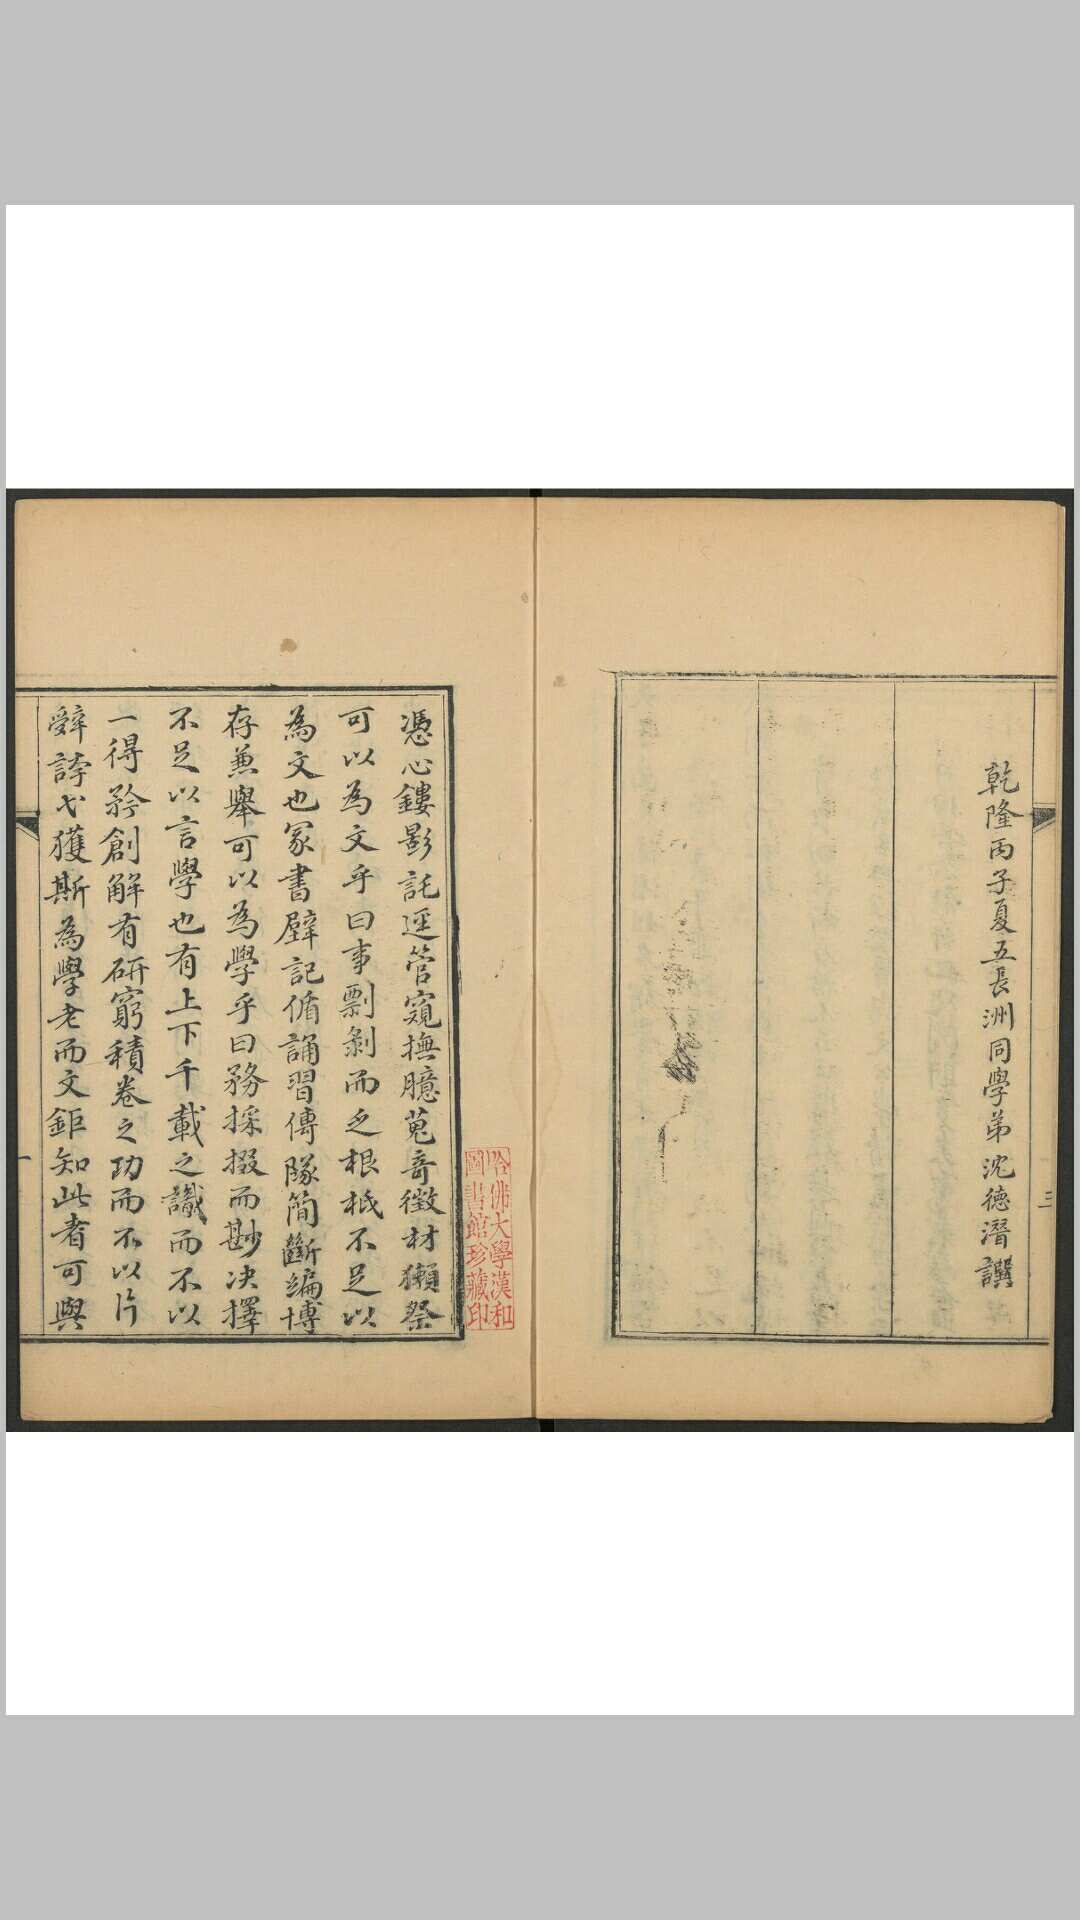 乾隆丙子夏五長洲同學弟沈德潛譔
三
哈佛大學漢和
圖書館珍藏印
憑心鏤影託逕管窺撫臆蒐奇徵材獺祭
可以為文乎曰事剽剝而乏根柢不足以
為文也冢書壁記循誦習傳隊簡斷編博
存兼舉可以為學乎曰務採掇而尠決擇
不足以言學也有上下千載之識而不以
一得矜創解有研窮積卷之功而不以片
辭誇弋獲斯為學老而文鉅知此者可與
一